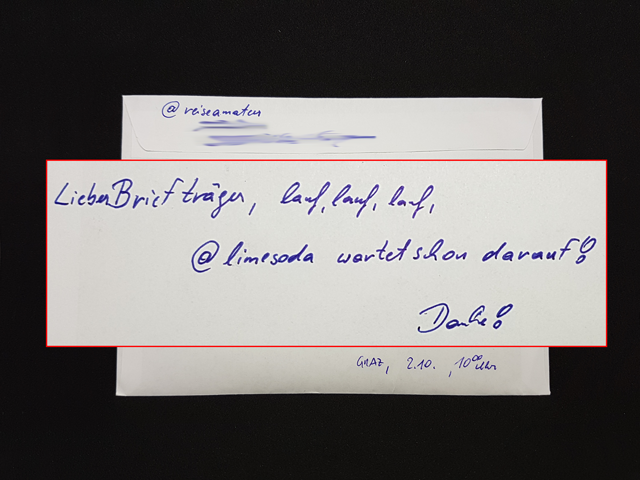 @reiseamateur
Lieber Briefträger, lauf, lauf, lauf,
@limesoda wartet schon darauf!
Danke!
GRAZ, 2.10., 10⁰⁰ Uhr